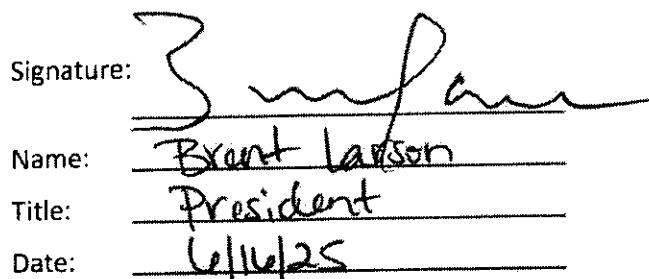 Signature:
Name: Brent Larson
Title: President
Date: 6/16/25